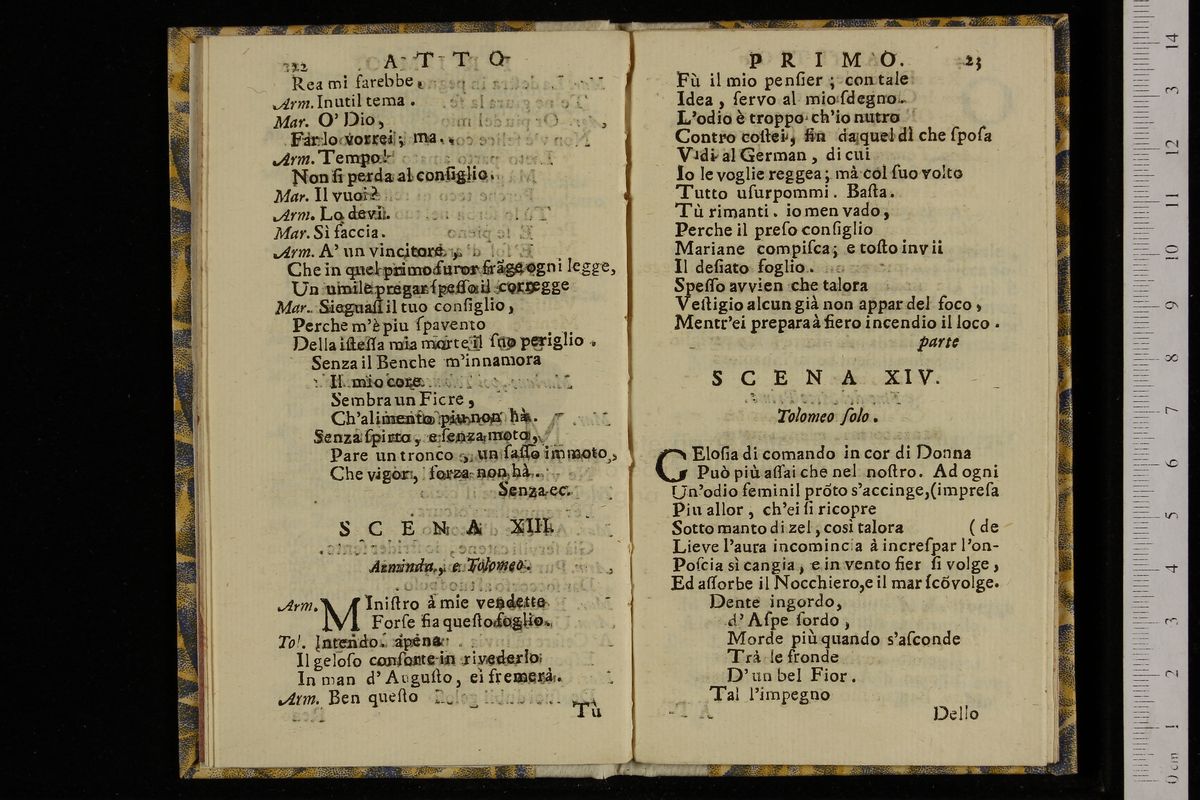 22 ATTO
Rea mi farebbe.
Arm. Inutil tema.
Mar. O' Dio,
Far lo vorrei; ma..
Arm. Tempo!
Non ſi perda al conſiglio.
Mar. Il vuoi?
Arm. Lo devi.
Mar. Sì faccia.
Arm. A' un vincitore,
Che in quel primo furor frāge ogni legge,
Un umile pregar ſpeſſo il corregge
Mar. Sieguaſi il tuo conſiglio,
Perche m'è piu ſpavento
Della iſteſſa mia morte il ſuo periglio.
Senza il Benche m'innamora
Il mio core
Sembra un Fiore,
Ch'alimento piu non hà.
Senza ſpirto, e ſenza moto,
Pare un tronco, un ſaſſo immoto,
Che vigor, forza non hà.
Senza ec.
SCENA XIII.
Arminda, e Tolomeo.
Arm. MIniſtro à mie vendette
Forſe ſia queſto foglio.
Tol. Intendo. apena
Il geloſo conſorte in rivederlo
In man d'Auguſto, ei fremerà.
Arm. Ben queſto
Tù
PRIMO. 23
Fù il mio penſier; con tale
Idea, ſervo al mio ſdegno.
L'odio è troppo ch'io nutro
Contro coſtei, fin da quel dì che ſpoſa
Vidi al German, di cui
Io le voglie reggea; mà col ſuo volto
Tutto uſurpommi. Baſta.
Tù rimanti. io men vado,
Perche il preſo conſiglio
Mariane compiſca; e toſto invii
Il deſiato foglio.
Speſſo avvien che talora
Veſtigio alcun già non appar del foco,
Mentr'ei prepara à fiero incendio il loco.
parte
SCENA XIV.
Tolomeo ſolo.
GEloſia di comando in cor di Donna
Può più aſſai che nel noſtro. Ad ogni
Un'odio feminil prōto s'accinge,(impreſa
Piu allor, ch'ei ſi ricopre
Sotto manto di zel, così talora (de
Lieve l'aura incomincia à increſpar l'on-
Poſcia sì cangia, e in vento fier ſi volge,
Ed aſſorbe il Nocchiero,e il mar ſcōvolge.
Dente ingordo,
d'Aſpe ſordo,
Morde più quando s'aſconde
Trà le fronde
D'un bel Fior.
Tal l'impegno
Dello
14
13
12
11
10
9
8
7
6
5
4
3
2
1
0 cm